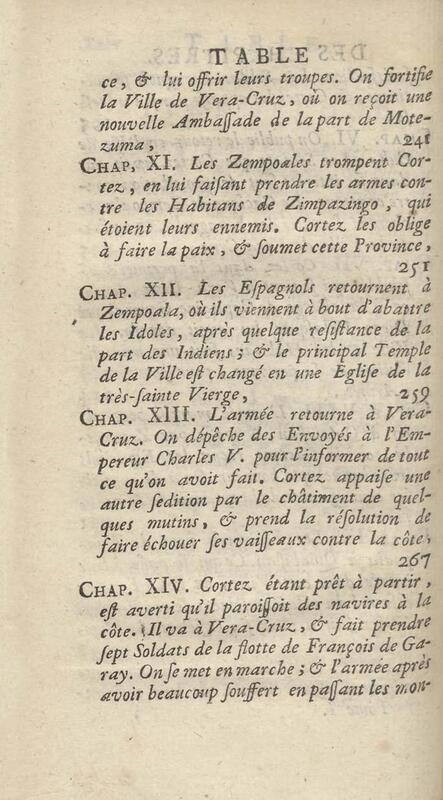 TABLE
ce, & lui offrir leurs troupes. On fortifie
la Ville de Vera-Cruz, où on reçoit une
nouvelle Ambaſſade de la part de Mote-
zuma, 241
CHAP. XI. Les Zempoales trompent Cor-
tez, en lui faiſant prendre les armes con-
tre les Habitans de Zimpazingo, qui
étoient leurs ennemis. Cortez les oblige
à faire la paix, & ſoumet cette Province,
251
CHAP. XII. Les Eſpagnols retournent à
Zempoala, où ils viennent à bout d'abattre
les Idoles, après quelque reſiſtance de la
part des Indiens; & le principal Temple
de la Ville eſt changé en une Egliſe de la
très-ſainte Vierge, 259
CHAP. XIII. L'armée retourne à Vera-
Cruz. On dépêche des Envoyés à l'Em-
pereur Charles V. pour l'informer de tout
ce qu'on avoit fait. Cortez appaiſe une
autre ſedition par le châtiment de quel-
ques mutins, & prend la réſolution de
faire échouer ſes vaiſſeaux contre la côte,
267
CHAP. XIV. Cortez étant prêt à partir,
eſt averti qu'il paroiſſoit des navires à la
côte. Il va à Vera-Cruz, & fait prendre
ſept Soldats de la flotte de François de Ga-
ray. On ſe met en marche; & l'armée après
avoir beaucoup ſouffert en paſſant les mon-